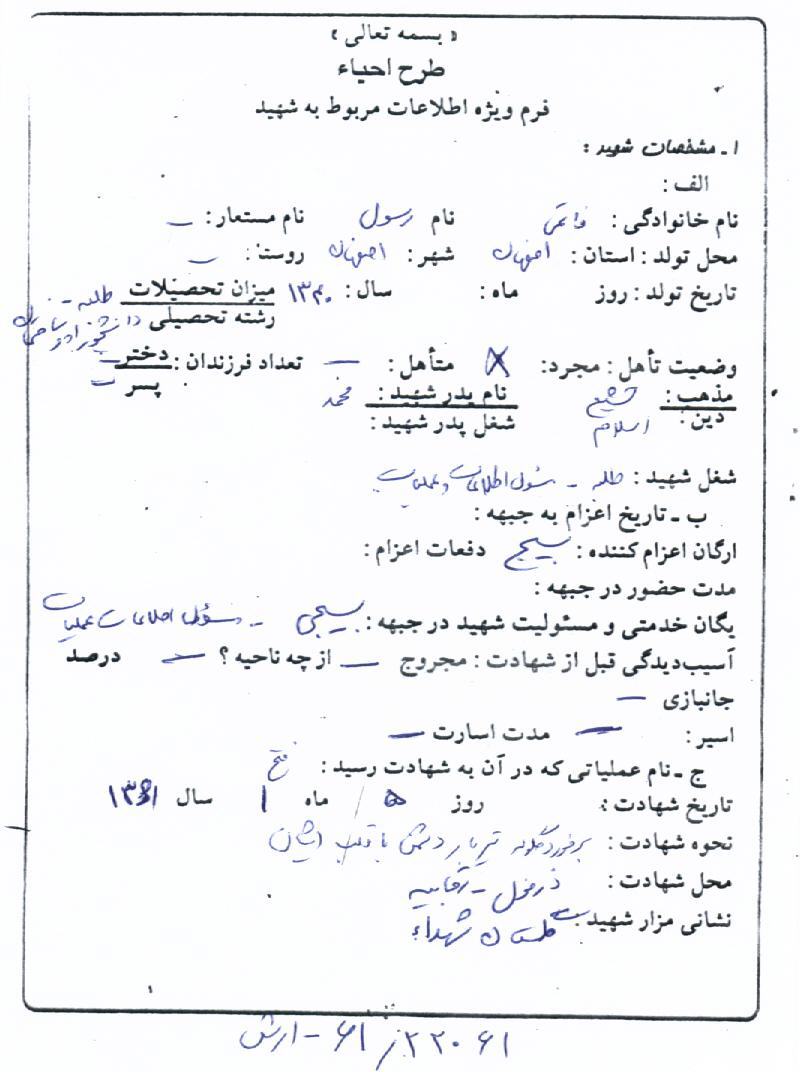 « بسمه تعالی »
طرح احیاء
فرم ویژه اطلاعات مربوط به شهید
۱ ـ مشخصات شهید :
الف :
نام خانوادگی : نام رسول نام مستعار : ـ
محل تولد : استان : اصفهان شهر : اصفهان روستا : ـ
تاریخ تولد : روز ماه : سال : ۱۳۴۰ میزان تحصیلات طلبه ـ
رشته تحصیلی
وضعیت تأهل : مجرد : X متأهل : — تعداد فرزندان : دختر ـ
پسر ـ
مذهب : تشیع نام پدر شهید : محمد
دین : اسلام شغل پدر شهید :
شغل شهید : طلبه ـ مسئول اطلاعات و عملیات
ب ـ تاریخ اعزام به جبهه :
ارگان اعزام کننده : بسیج دفعات اعزام :
مدت حضور در جبهه :
یگان خدمتی و مسئولیت شهید در جبهه : بسیجی ـ مسئول اطلاعات عملیات
آسیب‌دیدگی قبل از شهادت : مجروح — از چه ناحیه ؟ — درصد
جانبازی —
اسیر : — مدت اسارت —
ج ـ نام عملیاتی که در آن به شهادت رسید : فتح
تاریخ شهادت : روز ۵ / ماه ۱ سال ۱۳۶۱
نحوه شهادت : برخورد گلوله تیربار دشمن با قلب ایشان
محل شهادت : دزفول ـ رقابیه
نشانی مزار شهید : گلستان شهداء
۶۱ ۲۲۰ / ۶۱ - ارش